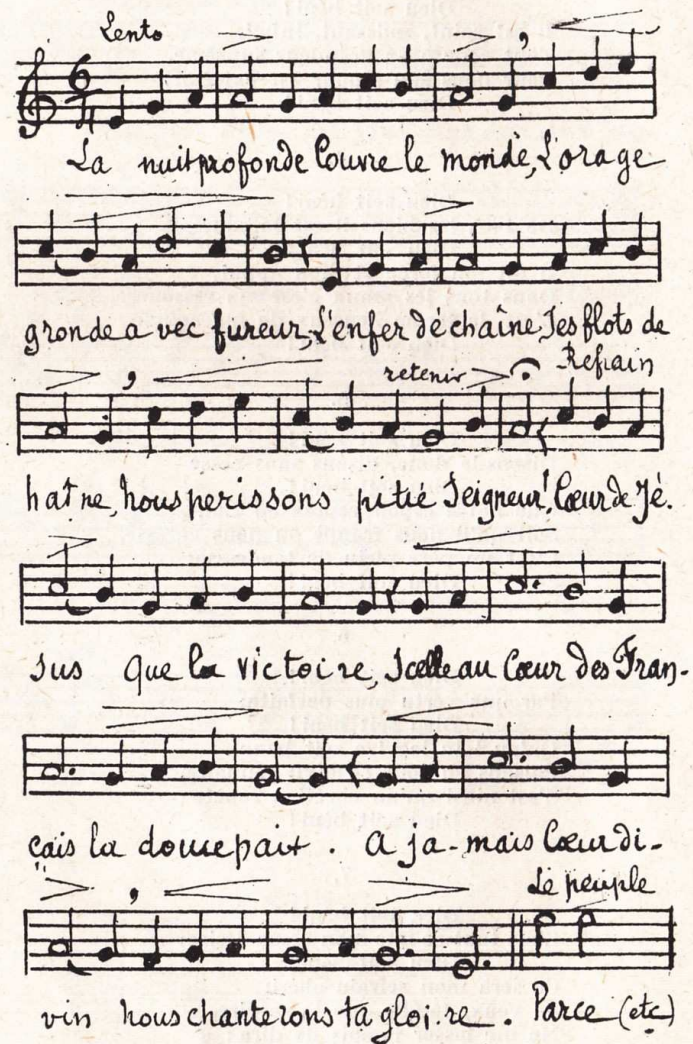 Lento
6
4
La nuit profonde Couvre le monde, L'orage
gronde a-vec fureur, L'enfer dechaîne, Ses flots de
retenir Refrain
haîne, nous perissons pitie Seigneur! Cœur de Jé-
sus Que la victoire, Scelle au Cœur des Fran-
çais la douce paix. A ja-mais Cœur di-
Le peuple
vin nous chanterons ta gloi-re. Parce (etc)